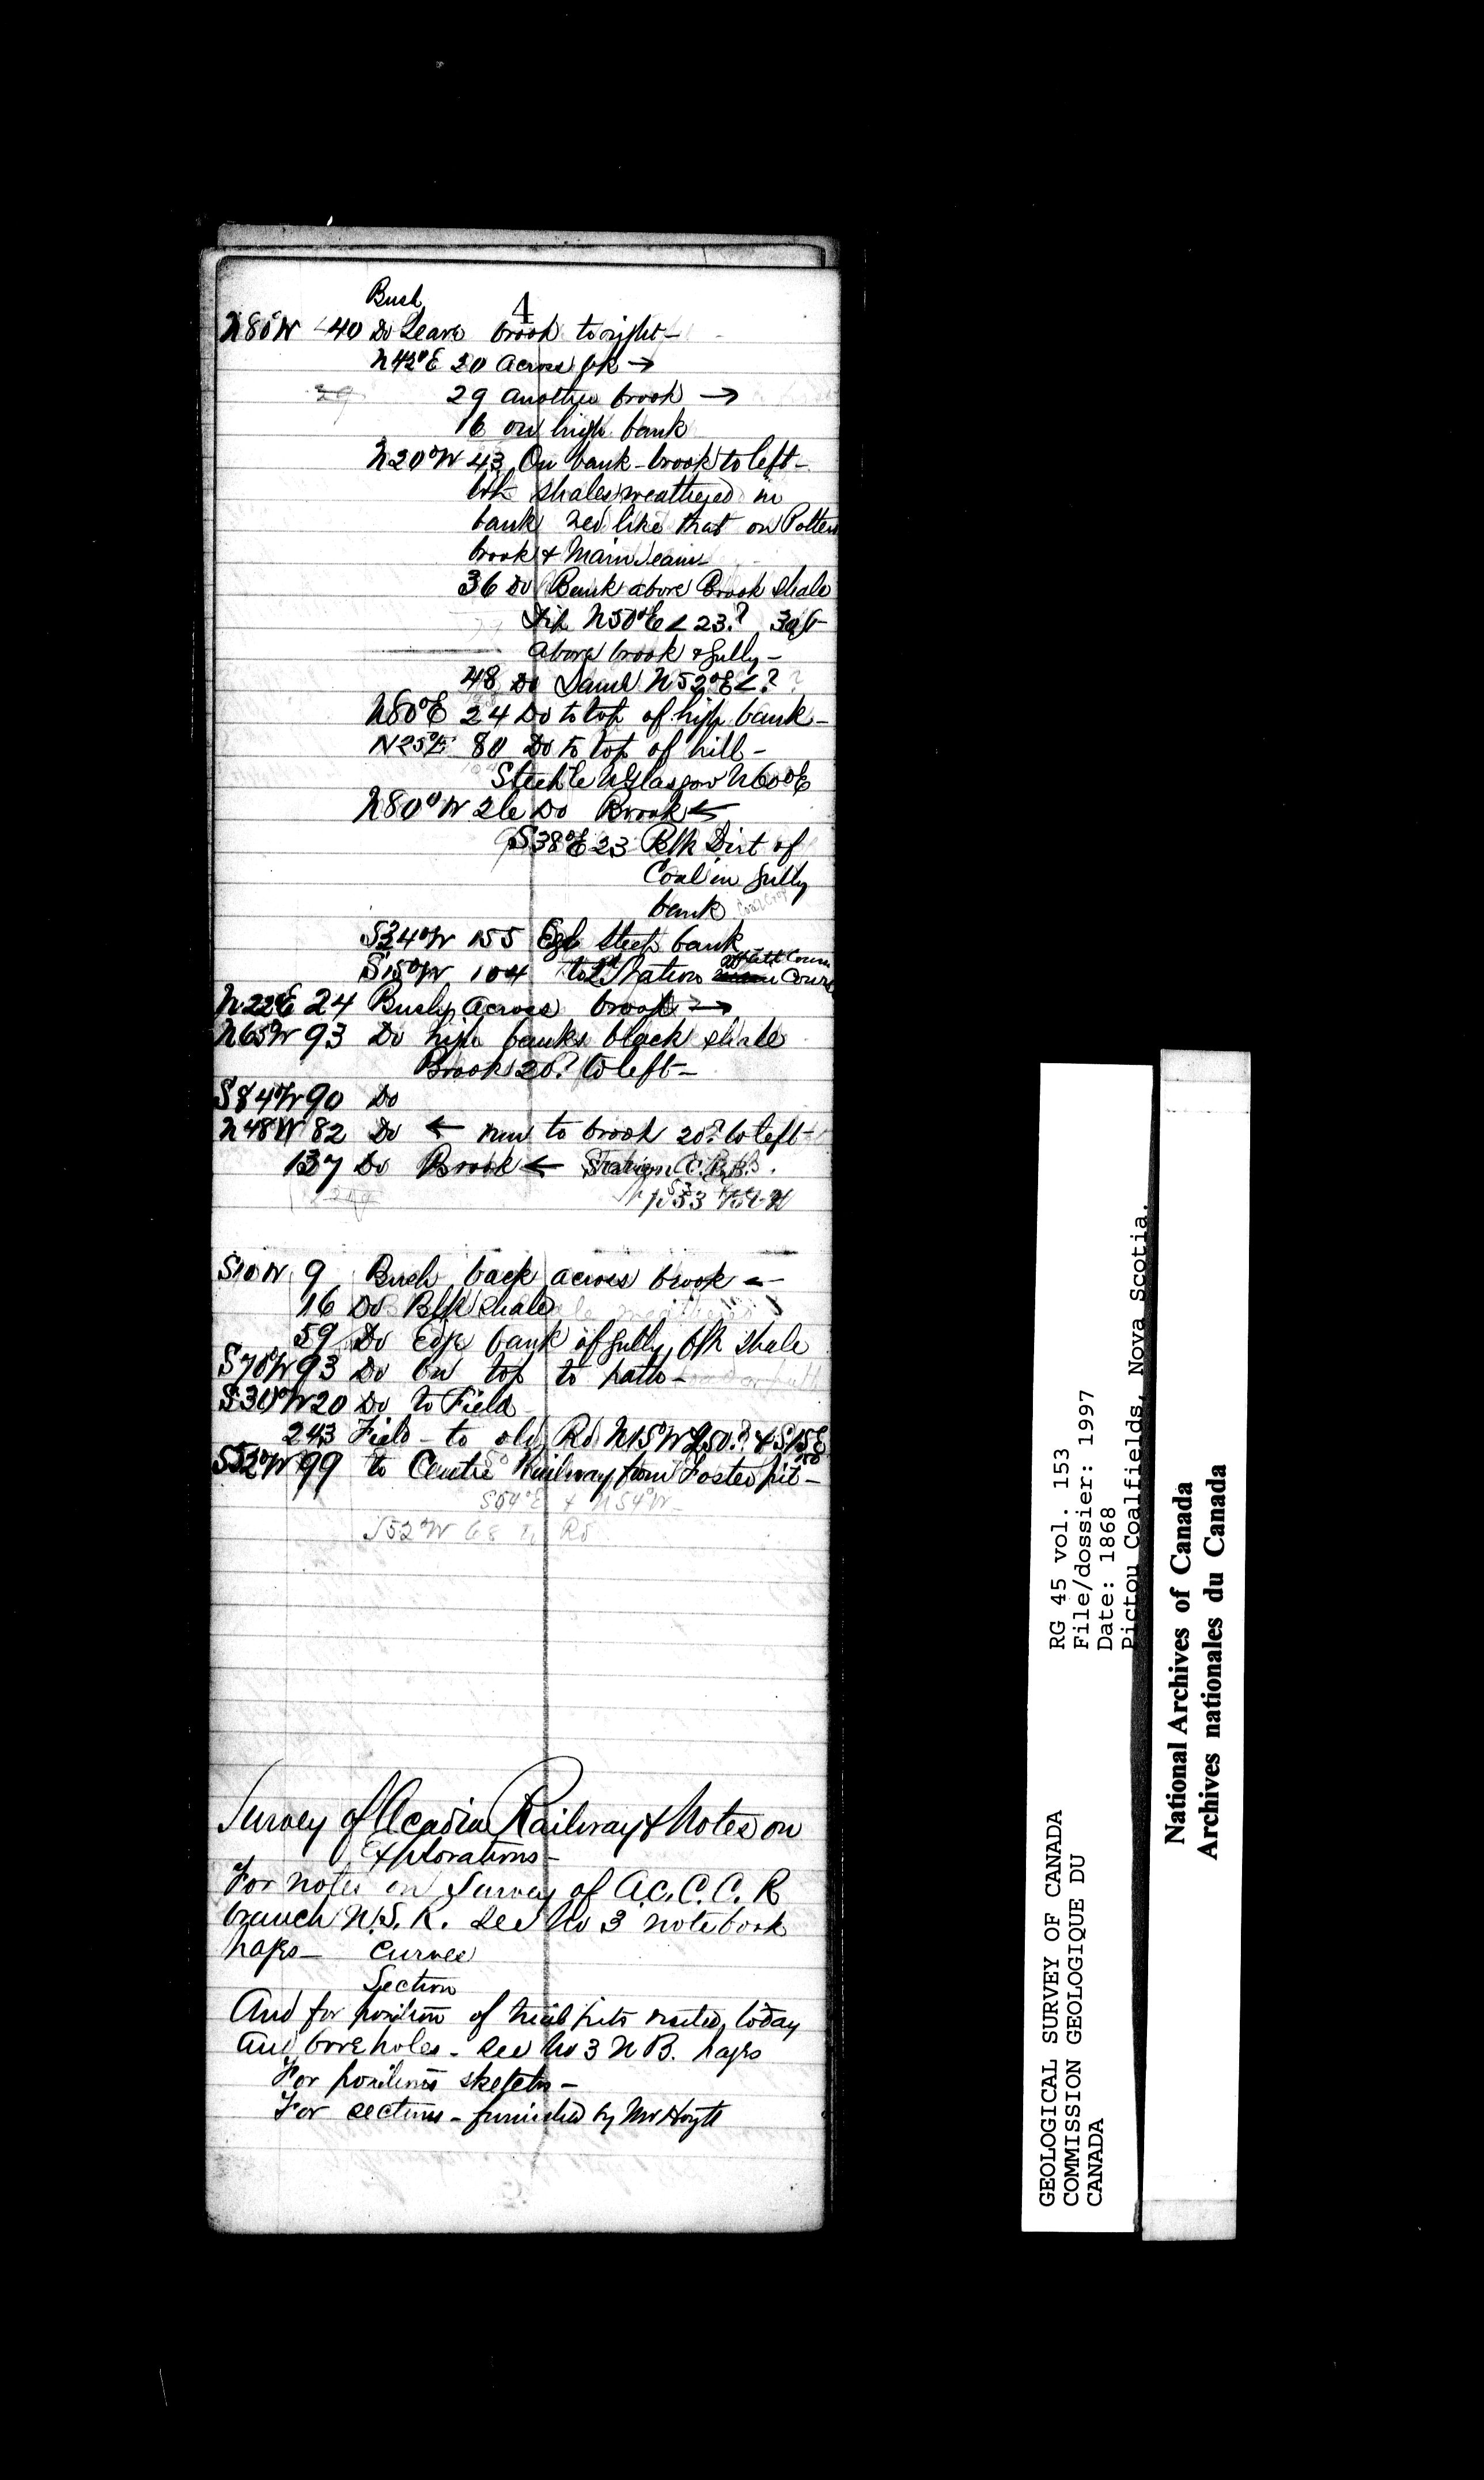 4
Bush
N80°W 40 Do Leave brook to right-
N42°E 20 Across bk →
29 another brook →
16 on high bank
N20°W 43 On bank - brook to left-
blk shales weathered in
bank red like that on Potters
brook & Main Seam
36 Do Bank above Brook shale
Dip N50°E < 23.?
above brook & gully -
48 Do Same N52°E < ?
N80°E 24 Do to top of high bank -
N25°E 80 Do to top of hill -
Steeple N Glasgow N60°E
N80°W 26 Do Brook ←
S38°E 23 Blk Dirt of
Coal in gully
bank
Coal Crop
S34°W 155 Edge steep bank
S15°W 104 to Station Course
N22E 24 Bush, across brook →
N65W 93 Do high banks black shale
Brook 20? to left -
S84°W 90 Do
N48W 82 Do ← run to brook 20? to left-
137 Do Brook ← Station
S10W 9 Bush back across brook ←
16 Do Blk shale
59 Do Edge bank of gully, blk shale
S70°W 93 Do on top to path -
S30°W 20 Do to Field
243 Field - to old Rd N15W 250.? & S15E
S52°W 99 to Centre Railway from Foster pit -
S54°E & N54°W -
S52°W 68 to Rd
Survey of Acadia Railway & Notes on
Explorations -
For notes on survey of Ac. C. C. R
branch N.S.R. see No 3 notebook
pages - Curves
Section
And for position of trial pits visited, today
and bore holes - see No 3 N B. pages
For positions sketches -
For sections - furnished by Mr Hoyt
GEOLOGICAL SURVEY OF CANADA
COMMISSION GEOLOGIQUE DU
CANADA
RG 45 vol. 153
File/dossier: 1997
Date: 1868
Pictou Coalfields, Nova Scotia.
National Archives of Canada
Archives nationales du Canada